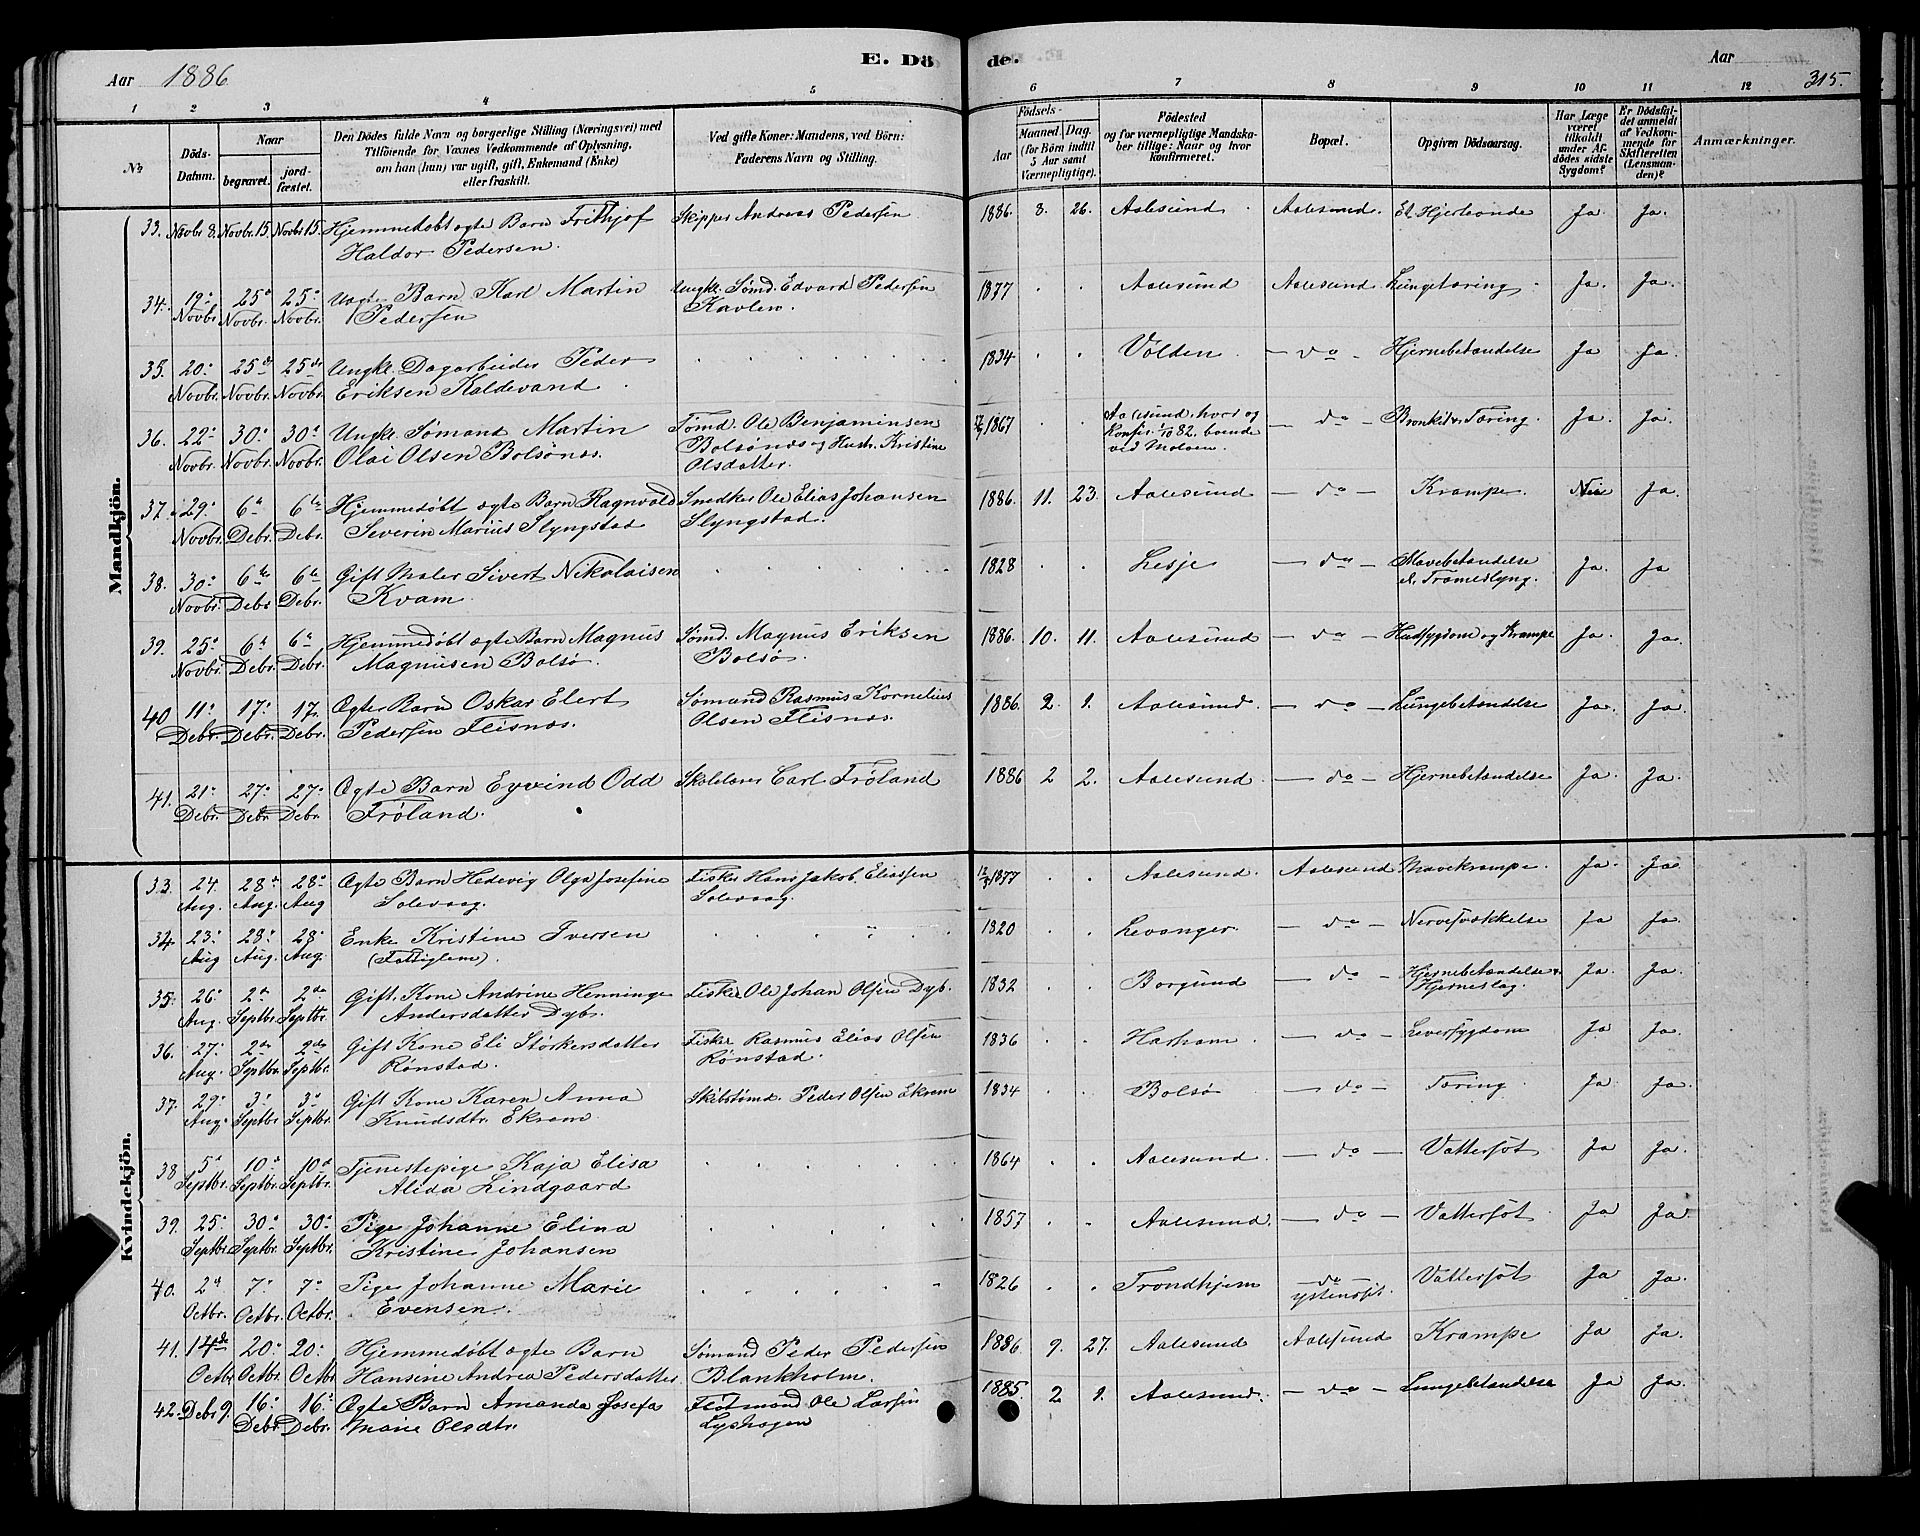 Aar 1886
E. Dö
de.
Aar
315.
1 2 3 4 5 6 7 8 9 10 11 12
№
Döds-Datum.
Naar
begravet.
jord-fæstet.
Den Dödes fulde Navn og borgerlige Stilling (Næringsvei) med
Tilföiende for Voxnes Vedkommende af Oplysning,
om han (hun) var ugift, gift, Enkemand (Enke)
eller fraskilt.
Ved gifte Koner: Mandens, ved Börn:
Faderens Navn og Stilling.
Födsels-
Aar
Maaned. Dag.
(for Börn indtil
5 Aar samt
Værnepligtige).
Födested
og for værnepligtige Mandska-
ber tillige: Naar og hvor
konfirmeret.
Bopæl.
Opgiven Dödsaarsag.
Har Læge
været
tilkaldt
under Af-
dödes sidste
Sygdom?
Er Dödsfal-
det anmeldt
af Vedkom-
mende for
Skifteretten
(Lensman-
den)?
Anmærkninger.
Mandkjön.
33. Novbr. 8. Novbr. 15. Novbr. 15. Hjemmedøbt ægte Barn Frithjof Skipper Andreas Pedersen 1886. 8. 26. Aalesund Aalesund. Hjerteonde Ja. Ja.
Haldor Pedersen.
34. 19de 25de 25de Uægte Barn Karl Martin Ungk. Sømd. Edvard Pedersen 1877 Aalesund Aalesund Lungetæring Ja. Ja.
Novbr. Novbr. Novbr. Pedersen Kavlen.
35. 20de 25de 25de Ungk. Dagarbeider Peder 1834 Volden - do - Hjernebetændelse Ja Ja.
Novbr. Novbr. Novbr. Eriksen Kaldevand
36. 22de 30de 30de Ungk. Sømand Martin Sømd. Ole Benjaminsen 1867 Aalesund, hvor og - do - Bronkit. Tæring. Ja. Ja.
Novbr. Novbr. Novbr. Olai Olsen Bolsønes. Bolsønes og Hustr. Kristine Konfir. 1/10 82. boende
Olsdatter. ved Moloen.
37. 29de 6te 6te Hjemmedøbt ægte Barn Ragnvald Snedker Ole Elias Johansen 1886. 11. 23. Aalesund - do - Krampe. Nei Ja.
Novbr. Debr. Debr. Severin Marius Slyngstad Slyngstad.
38. 30de 6te 6te Gift Maler Sivert Nikolaisen 1828 Lesje - do - Mavebetændelse Ja. Ja
Novbr. Debr. Debr. Kvam.
39. 25de 6te 6te Hjemmedøbt ægte Barn Magnus Sømd. Magnus Eriksen 1886. 10. 11. Aalesund - do - Hudsygdom og Krampe Ja. Ja.
Novbr. Debr. Debr. Magnusen Bolsø. Bolsø.
40 11te 17de 17. Ægte Barn Oskar Elert Sømand Rasmus Kornelius 1886. 2. 1. Aalesund. - do - Lungebetændelse Ja. Ja.
Debr. Debr. Debr. Pedersen Flisnæs. Olsen Flisnæs.
41. 21de 27de 27de Ægte Barn Eyvind Odd Skolelærer Carl Frøland 1886 2 2. Aalesund - do - Hjernebetændelse Ja. Ja.
Debr. Debr. Debr. Frøland.
Kvindekjön.
33. 24. 28de 28de Ægte Barn Hedevig Olga Josefine Fisker Hans Jakob Eliassen 1877 Aalesund. Aalesund Mavekrampe. Ja. Ja.
Aug. Aug. Aug Solevaag. Solevaag.
34. 23de 28de 28de Enke Kristine Iversen 1820 Levanger. - do - Nervesvækkelse Ja Ja.
Aug Aug. Aug. (Fattiglem).
35. 26de 2den 2den Gift Kone Andrine Henninge Fisker Ole Johan Olsen Dyb. 1832 Borgund - do - Hjernebetændelse Ja. Ja.
Aug. Septbr. Septbr. Andersdatter Dyb. Hjerneslag.
36. 27de 2den 2den Gift Kone Eli Størkersdatter Fisker Rasmus Elias Olsen 1836 Harham - do - Leversygdom Ja Ja.
Aug. Septbr. Septbr. Rønstad. Rønstad.
37. 29de 3de 3de Gift Kone Karen Anna Skibstømd. Peder Olsen Ekrem 1834 Bolsø - do - Tæring. Ja Ja.
Aug. Septbr. Septbr. Knudsdtr. Ekrem.
38 5te 10de 10de Tjenestepige Kaja Elisa 1864 Aalesund. - do - Vattersot Ja Ja.
Septbr. Septbr. Septbr. Alida Lindgaard
39. 25de 30de 30de Pige Johanne Elina 1857 Aalesund. - do - Vattersot. Ja Ja
Septbr. Septbr. Septbr. Kristine Johansen
40. 2den 7de 7de Pige Johanne Marie 1826 Trondhjem - do - Vattersot Ja Ja.
Octbr. Octbr. Octbr. Evensen.
41. 14de 20de 20de Hjemmedøbt ægte Barn Sømand Peder Pedersen 1886 9. 27. Aalesund Aalesund Krampe Ja Ja.
Octbr Octbr. Octbr Hansine Andrea Pedersdatter Blankholm.
42. Debr. 9. 16de 16de Ægte Barn Amanda Josefa Flotmand Ole Larsen 1885. 2 1. Aalesund. - do - Lungebetændelse Ja Ja.
Debr. Debr. Marie Olsdtr. Lyshagen